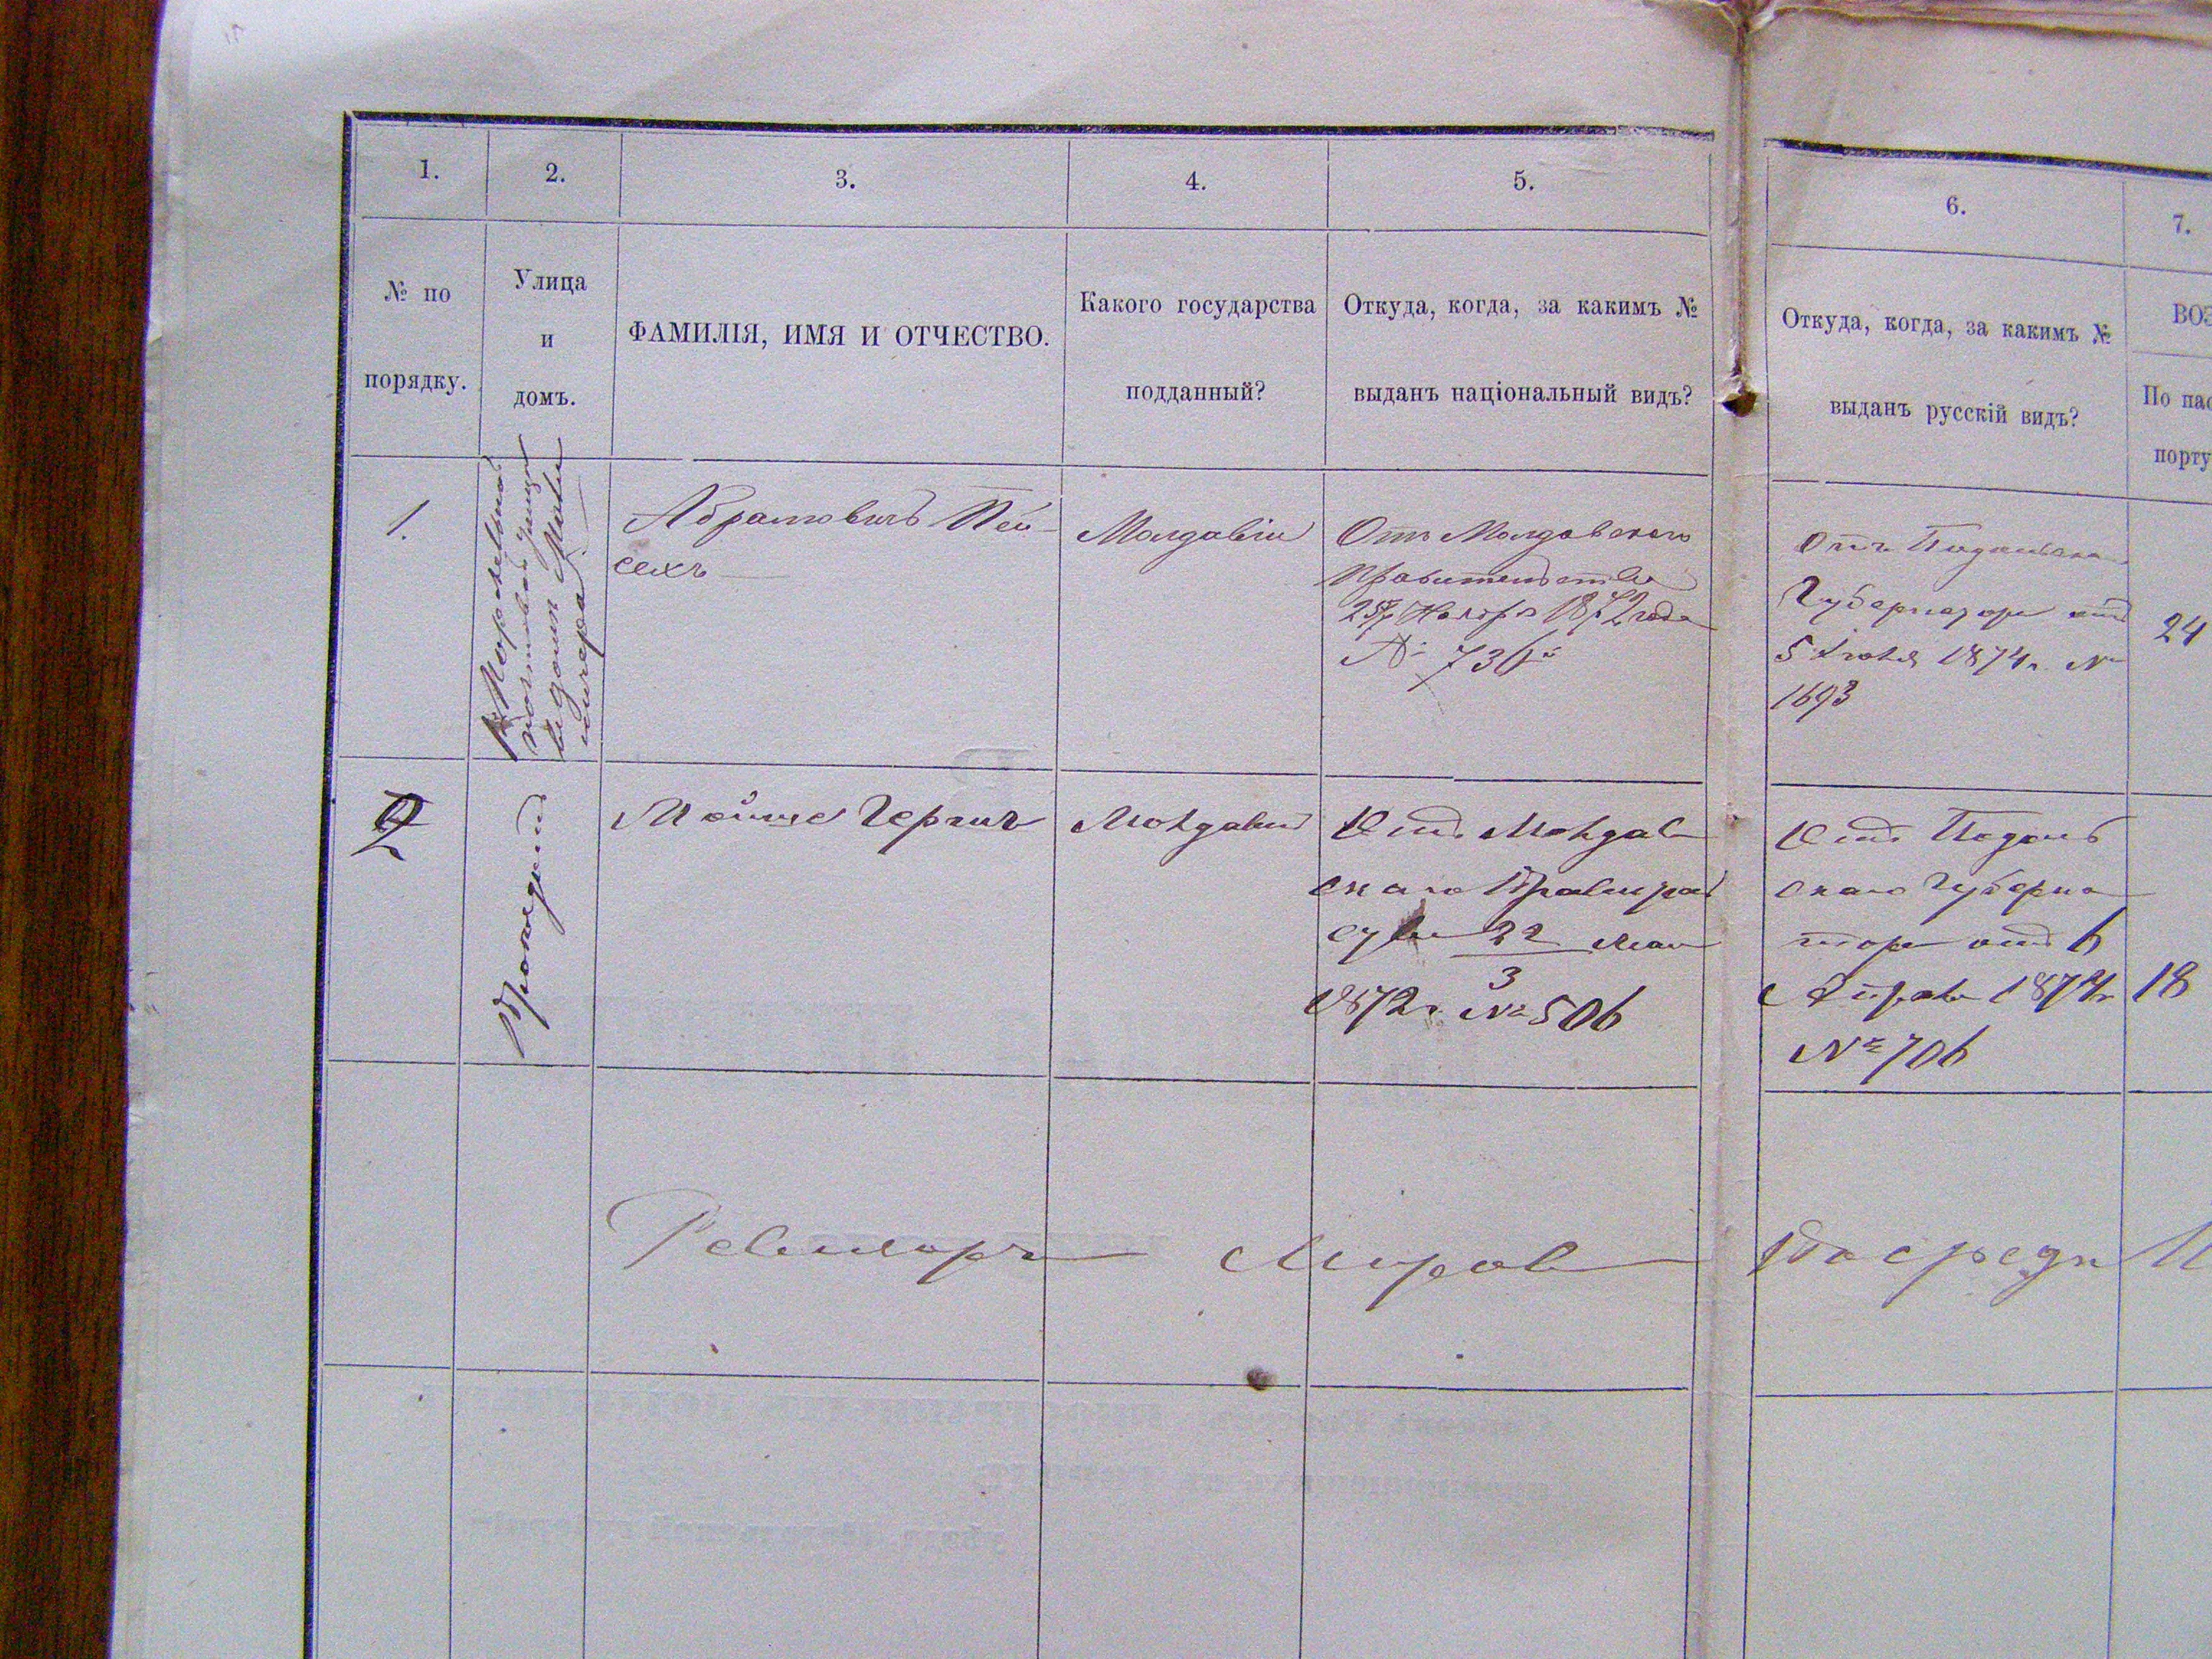 1.
2.
3.
4.
5.
6.
7.
№ по
порядку.
Улица
и
домъ.
ФАМИЛІЯ, ИМЯ И ОТЧЕСТВО.
Какого государства
подданный?
Откуда, когда, за какимъ №
выданъ національный видъ?
Откуда, когда, за какимъ №
выданъ русскій видъ?
ВОЗ
По пас
порту
1.
въ домѣ
Абрамовичъ Пей-
сехъ
Молдавіи
Отъ Молдавскаго
Правительства
1872 года
№ 736
Отъ Подольска
Губернатора отъ
5 1874 г. №
1693
24
2
Мойше Герчих
Молдавіи
Отъ Молдав
скаго
22 мая
3
1872 г. № 506
Отъ Подоль
скаго Губерна
тора отъ 6
Апреля 1874 г.
№ 706
18
Миров
Посредн